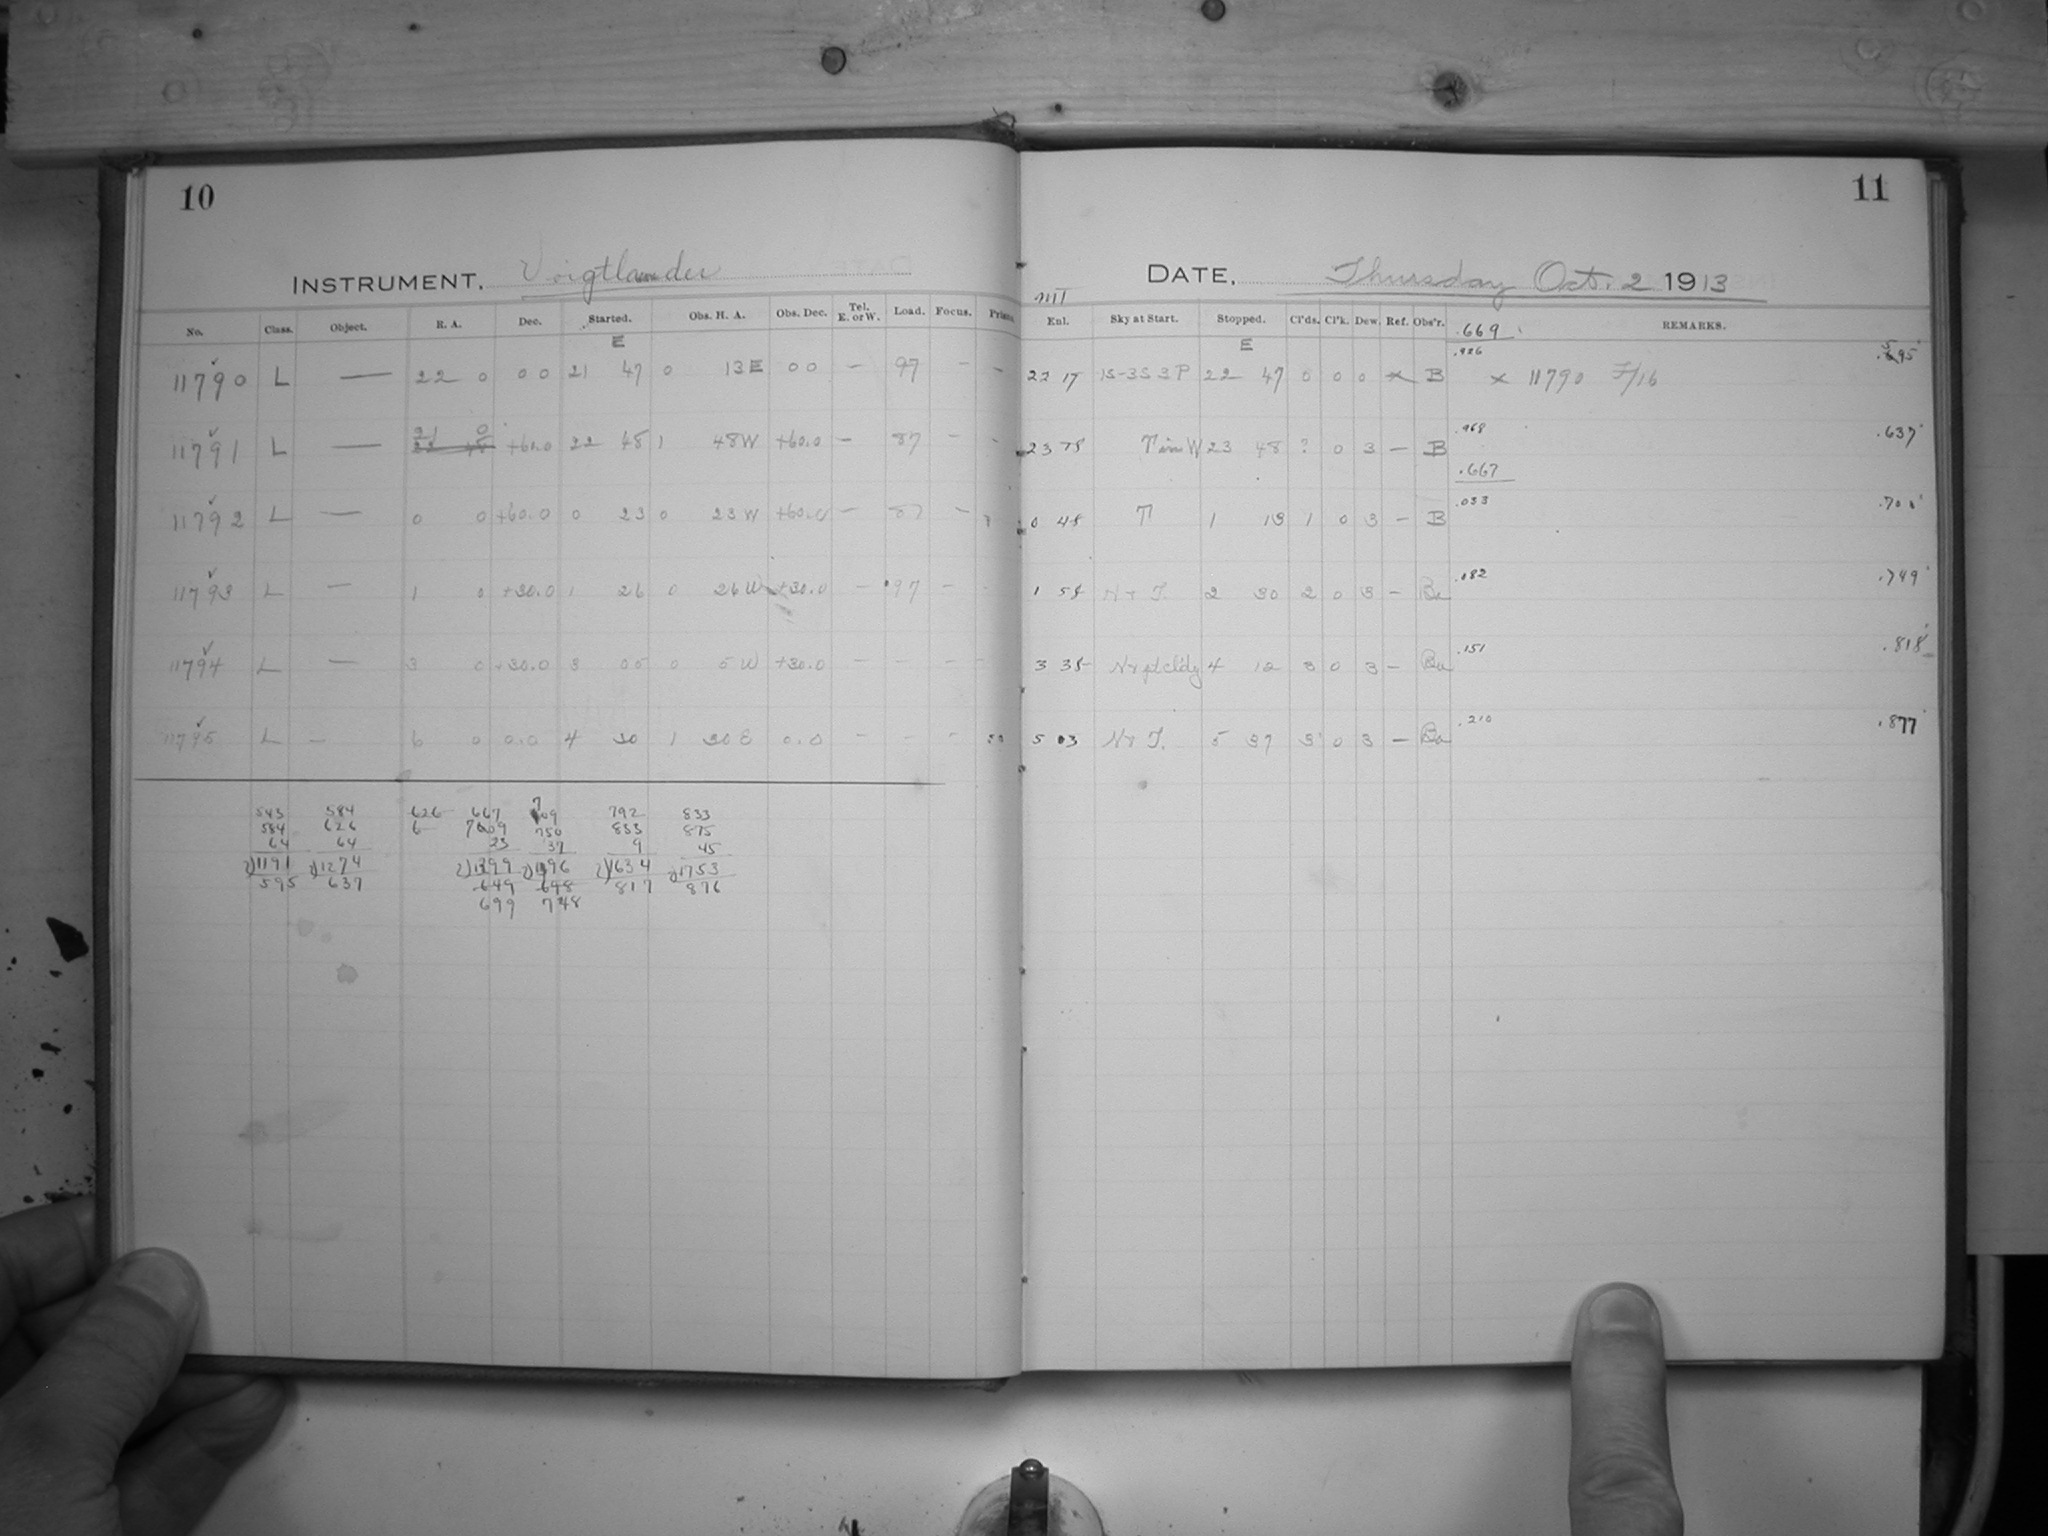 10
11
INSTRUMENT. Voigtlander
DATE, Thursday Oct. 2 1913
No. Class. Object. R. A. Dec. Started. Obs. H. A. Obs. Dec. Tel. E. or W. Load. Focus.
Enl. Sky at Start. Stopped. Cl'ds. Cl'k. Dew. Ref. Obs'r. REMARKS.
.669
E E
11790 L — 22 0 0 0 21 47 0 13 E 0 0 — 97 — — 22 17 1S-3S 3P 22 47 0 0 0 x B .926 x 11790 F/16 .595
11791 L — 21 0 +60.0 22 48 1 48 W +60.0 — 87 — — 23 18 23 48 ? 0 3 — B .968 .637
.667
11792 L — 0 0 +60.0 0 23 0 23 W +60.0 — 87 — 0 48 T 1 13 1 0 3 — B .033
11793 L — 1 0 +30.0 1 26 0 26 W +30.0 — 97 — 1 58 N & T. 2 30 2 0 3 — .082 .749
11794 L — 3 0 +30.0 3 05 0 5 W +30.0 — — — — 3 38 4 12 3 0 3 — .151 .818
11795 L — 6 0 0.0 4 30 1 30 E 0.0 — — — 5 03 N & T. 5 37 3 0 3 — .210 .877
543 584 626 667 709 792 833
584 626 6 709 750 833 875
64 64 23 37 9 45
2)1191 2)1274 2)1399 2)1496 2)1634 2)1753
595 637 649 698 817 876
699 748